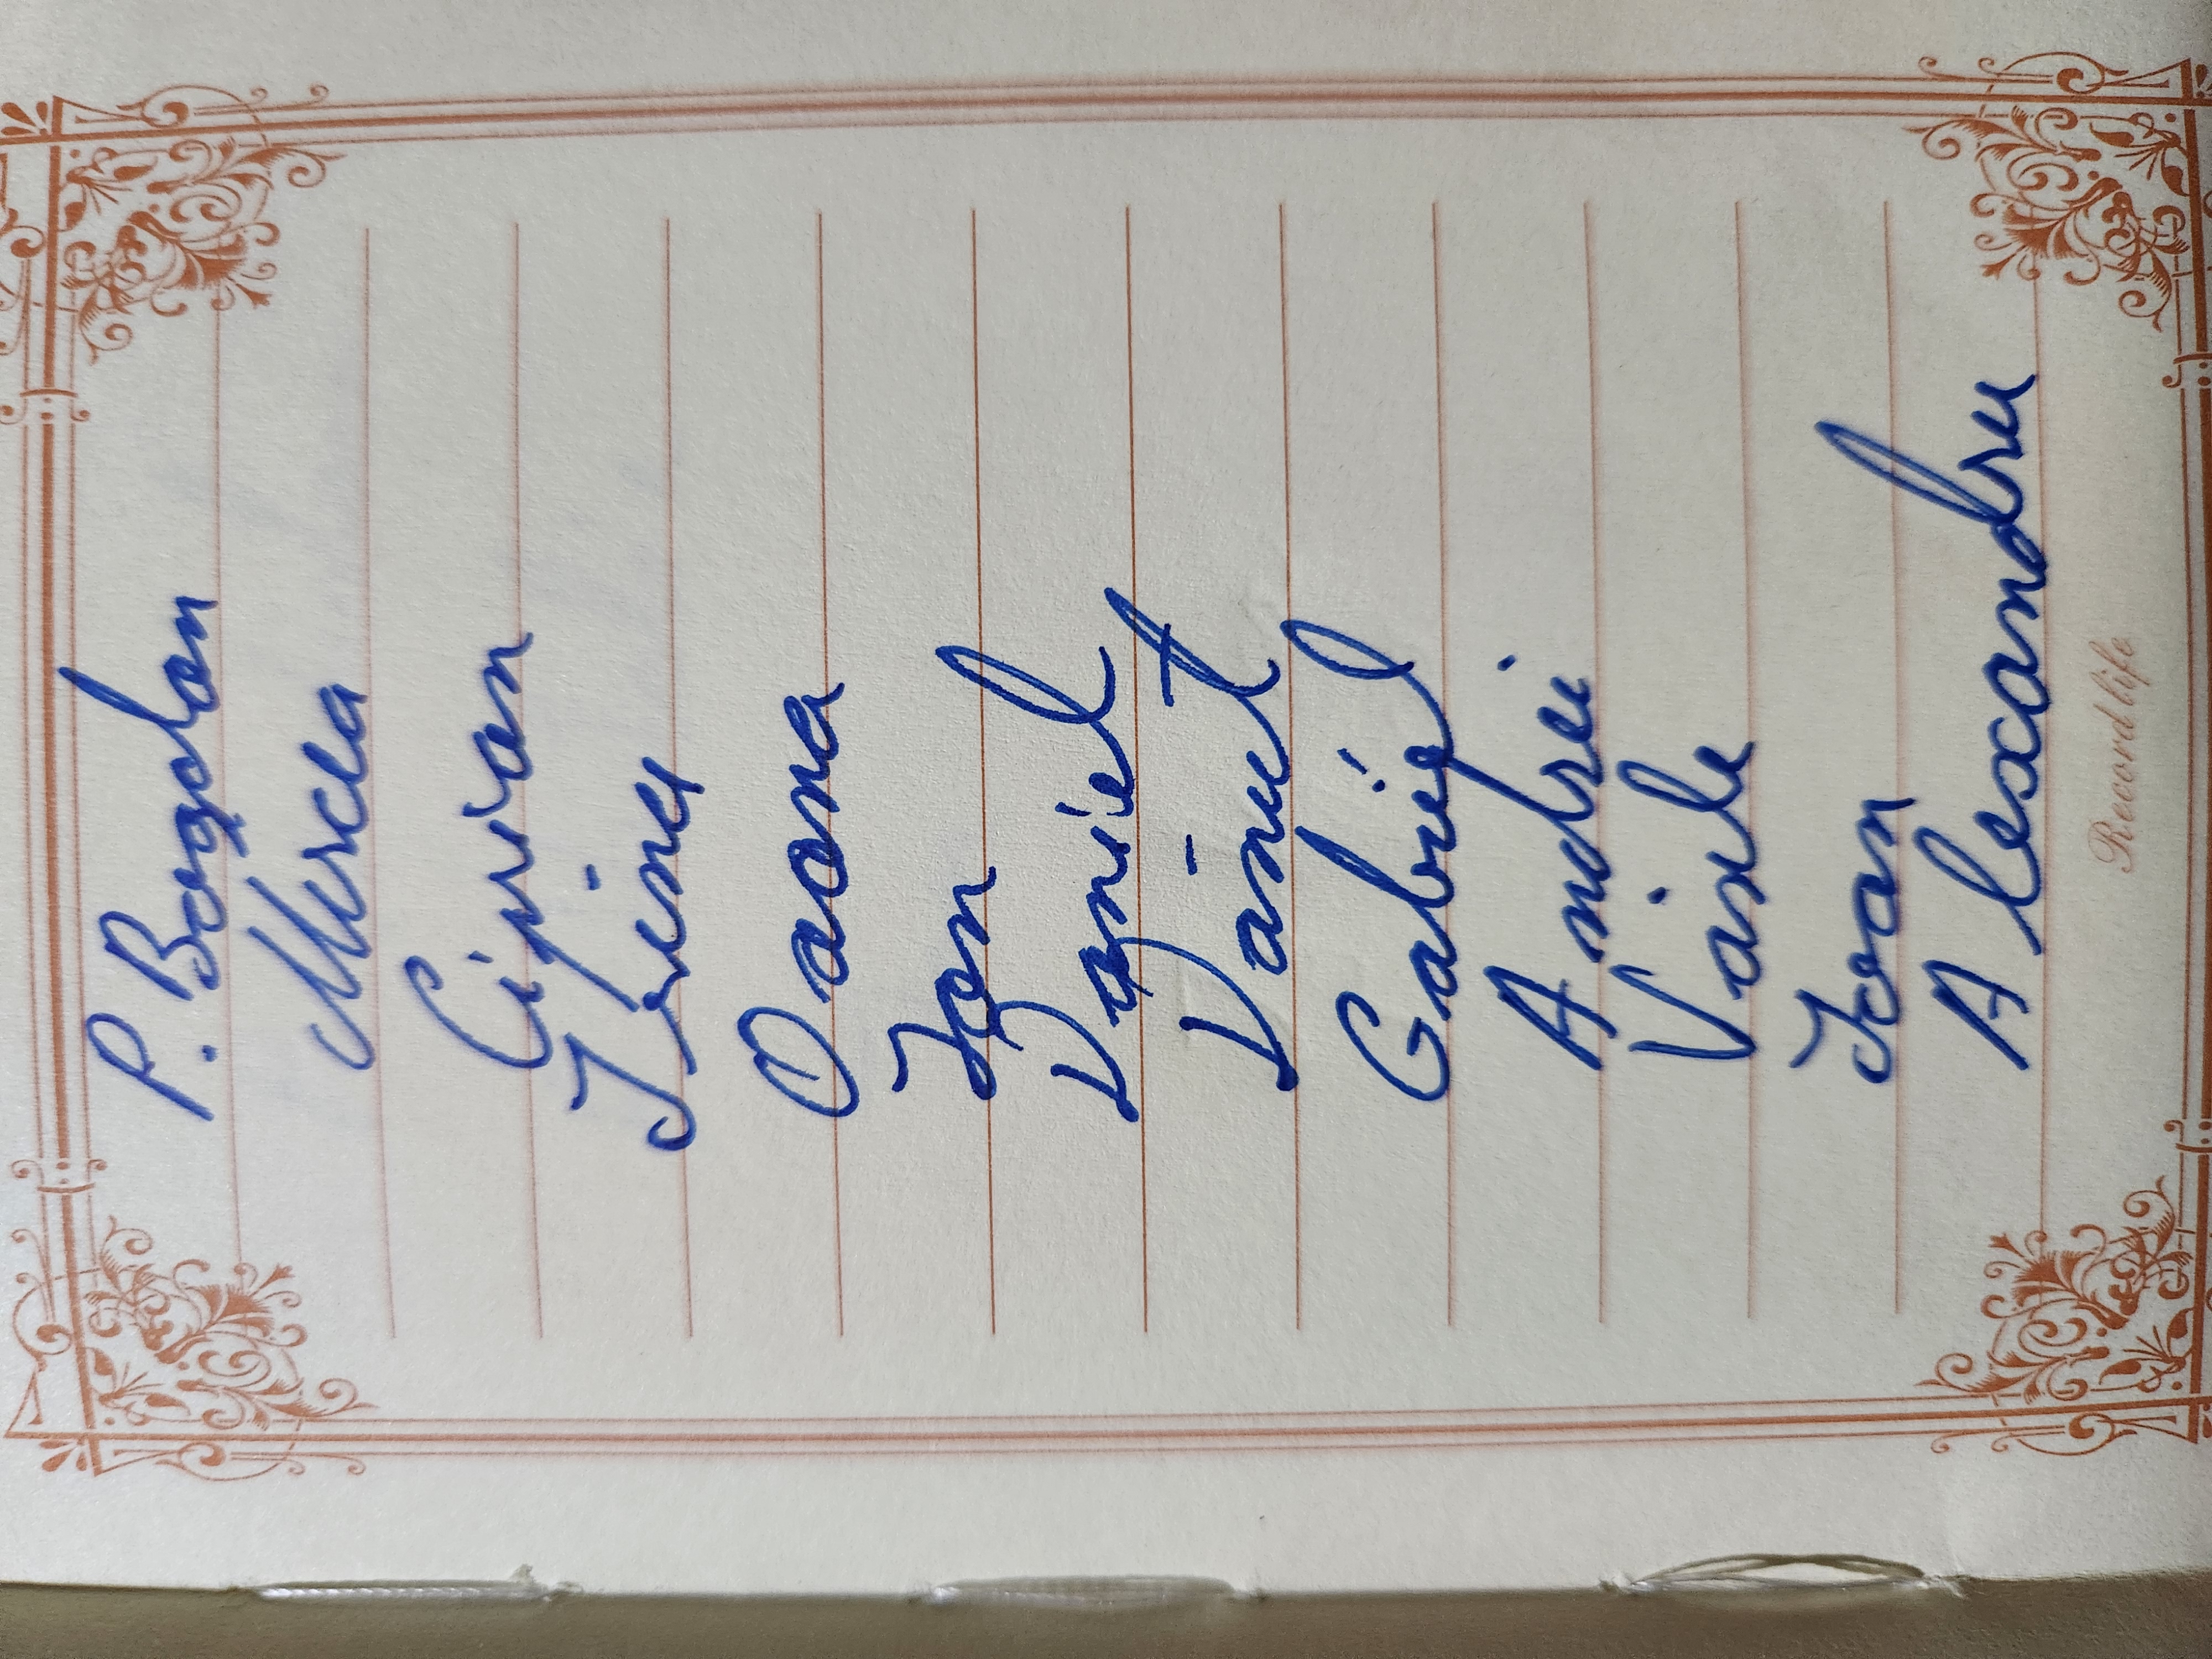 P. Bogdan
Mircea
Ciprian
Irina
Oana
Ion
Daniel
Dănuț
Gabriel
Andrei
Vasile
Ioan
Alexandru
Record life